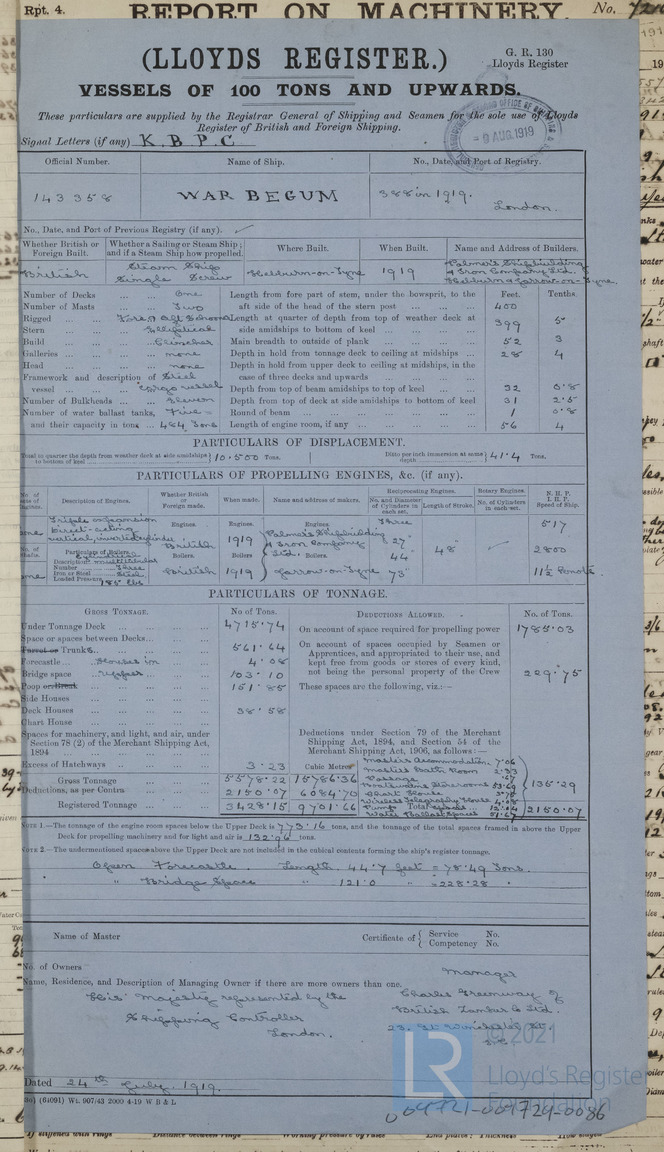 Rpt. 4.
REPORT ON MACHINERY.
No.
(LLOYDS REGISTER.)
G. R. 130
Lloyds Register
VESSELS OF 100 TONS AND UPWARDS.
These particulars are supplied by the Registrar General of Shipping and Seamen for the sole use of Lloyds
Register of British and Foreign Shipping.
Signal Letters (if any) K. B. P. C
9 AUG. 1919
Official Number. Name of Ship. No., Date, and Port of Registry.
143358 WAR BEGUM 388 in 1919.
London.
No., Date, and Port of Previous Registry (if any).
Whether British or Foreign Built. Whether a Sailing or Steam Ship; and if a Steam Ship how propelled. Where Built. When Built. Name and Address of Builders.
British Steam Ship Single Screw Hebburn-on-Tyne 1919 Palmer's Shipbuilding & Iron Company Ltd. Hebburn & Jarrow-on-Tyne.
Feet. Tenths.
Number of Decks ... ... One Length from fore part of stem, under the bowsprit, to the
Number of Masts ... ... Two aft side of the head of the stern post ... ... ... 400
Rigged ... ... Fore & Aft Schooner Length at quarter of depth from top of weather deck at
Stern ... ... Elliptical side amidships to bottom of keel ... ... ... 399 5
Build ... ... Clincher Main breadth to outside of plank ... ... ... 52 3
Galleries ... ... none Depth in hold from tonnage deck to ceiling at midships ... 28 4
Head ... ... none Depth in hold from upper deck to ceiling at midships, in the
Framework and description of Steel case of three decks and upwards ... ... ...
vessel ... ... Cargo vessel Depth from top of beam amidships to top of keel ... 32 0.8
Number of Bulkheads ... Eleven Depth from top of deck at side amidships to bottom of keel 31 2.5
Number of water ballast tanks, Five - Round of beam ... ... ... 1 0.8
and their capacity in tons ... 484 Tons Length of engine room, if any ... ... ... 56 4
PARTICULARS OF DISPLACEMENT.
Total to quarter the depth from weather deck at side amidships to bottom of keel 10.500 Tons. Ditto per inch immersion at same depth 41.4 Tons.
PARTICULARS OF PROPELLING ENGINES, &c. (if any).
No. of sets of Engines. Description of Engines. Whether British or Foreign made. When made. Name and address of makers. Reciprocating Engines. No. and Diameter of Cylinders in each set. Length of Stroke. Rotary Engines. No. of Cylinders in each set. N.H.P. I.H.P. Speed of Ship.
one Triple expansion direct-acting vertical, inverted cylinder
Engines. British 1919 Palmer's Shipbuilding & Iron Company Ltd. Three 27" 44" 73" 48" 517
2800
No. of Shafts. Particulars of Boilers. Description Cylindrical multitubular
Number Three
Iron or Steel Steel
Loaded Pressure 185 lbs
one Boilers. British 1919 Jarrow-on-Tyne 11½ knots.
PARTICULARS OF TONNAGE.
GROSS TONNAGE. No of Tons. DEDUCTIONS ALLOWED. No. of Tons.
Under Tonnage Deck ... ... 4715.74 On account of space required for propelling power 1785.03
Space or spaces between Decks... ...
Turret or Trunks. ... ... 561.64 On account of spaces occupied by Seamen or
Forecastle ... Houses in ... 4.08 Apprentices, and appropriated to their use, and
Bridge space ... 103.10 kept free from goods or stores of every kind,
not being the personal property of the Crew 229.75
Poop or Break ... ... 151.85 These spaces are the following, viz.:—
Side Houses ... ...
Deck Houses ... ... 38.58
Chart House ... ...
Spaces for machinery, and light, and air, under Deductions under Section 79 of the Merchant
Section 78 (2) of the Merchant Shipping Act, Shipping Act, 1894, and Section 54 of the
1894 ... ... Merchant Shipping Act, 1906, as follows:—
Excess of Hatchways ... ... 3.23 Cubic Metres Master's Accommodation 7.06
Master's Bath Room 2.33
Gross Tonnage ... 5578.22 15786.36
Deductions, as per Contra ... 2150.07 6084.70 Boatswain's Storerooms 53.69 135.29
Chart House
Registered Tonnage ... 3428.15 9701.66 Wireless Telegraphy House 4.08
Total 2150.07
Water Ballast Spaces 51.67
NOTE 1.—The tonnage of the engine room spaces below the Upper Deck is 773.16 tons, and the tonnage of the total spaces framed in above the Upper
Deck for propelling machinery and for light and air is 132.96 tons.
NOTE 2.—The undermentioned spaces above the Upper Deck are not included in the cubical contents forming the ship's register tonnage.
Open Forecastle. Length 44.7 feet = 78.49 Tons.
" Bridge Space " 121.0 " = 228.28 "
Name of Master Certificate of { Service No.
Competency No.
No. of Owners
Name, Residence, and Description of Managing Owner if there are more owners than one.
Manager
His Majesty represented by the Charles Greenway of
Shipping Controller British Tanker Co Ltd.
London. 23, Gt Winchester St.
© 2021
Lloyd's Register
Foundation
Dated 24th July, 1919.
(64091) Wt. 907/43 2000 4-19 W B & L
004721-004724-0086